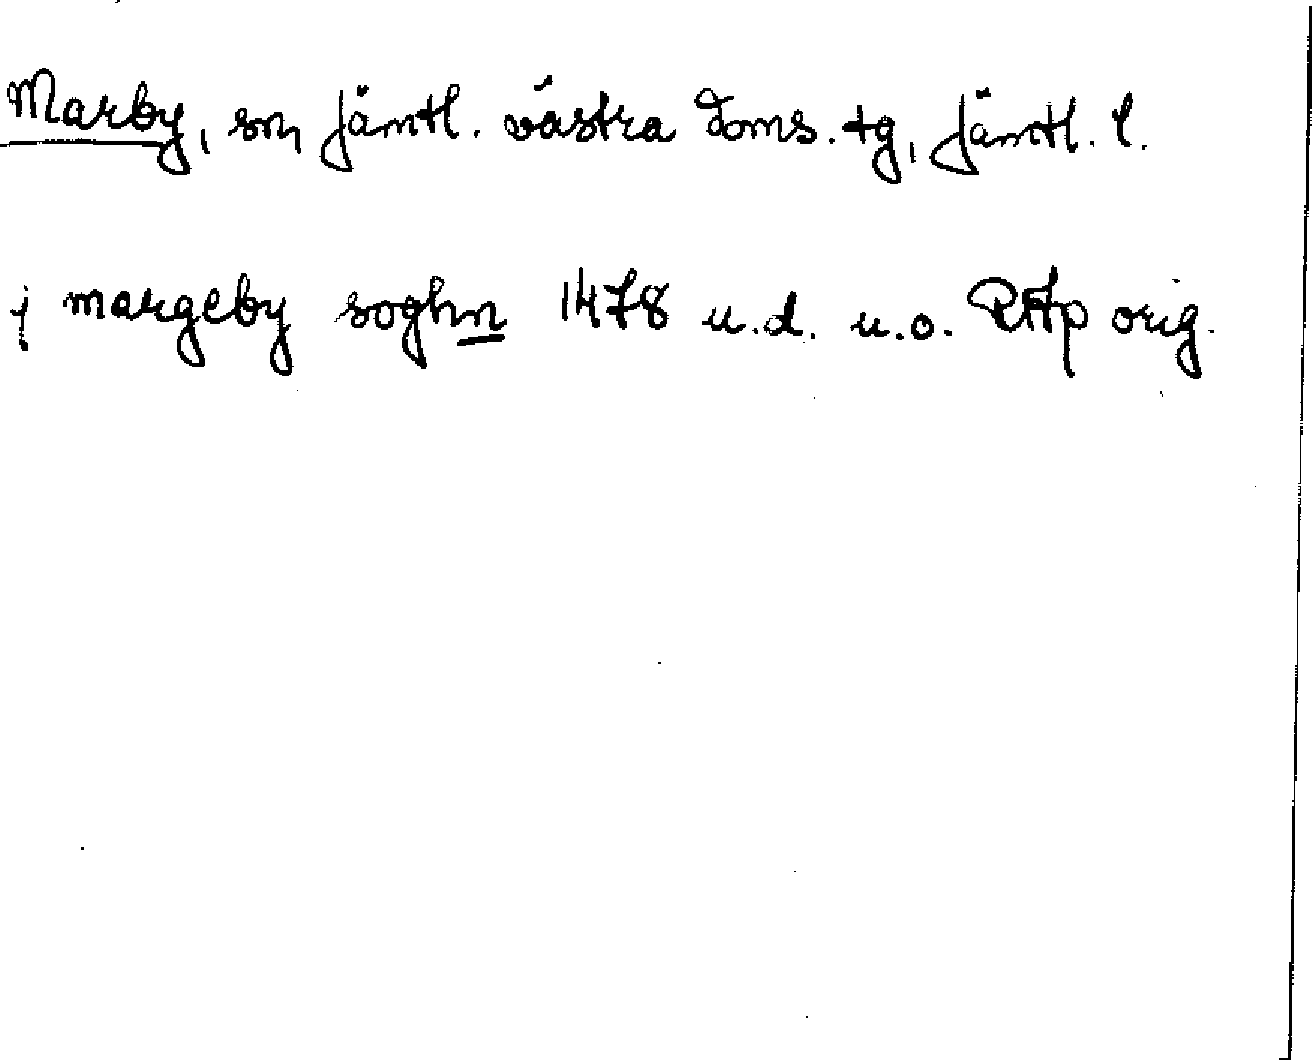 Marby, sn, Jämtl. västra doms. tg, Jämtl. l.
j margeby soghn 1478 u.d. u.o. RAp orig.